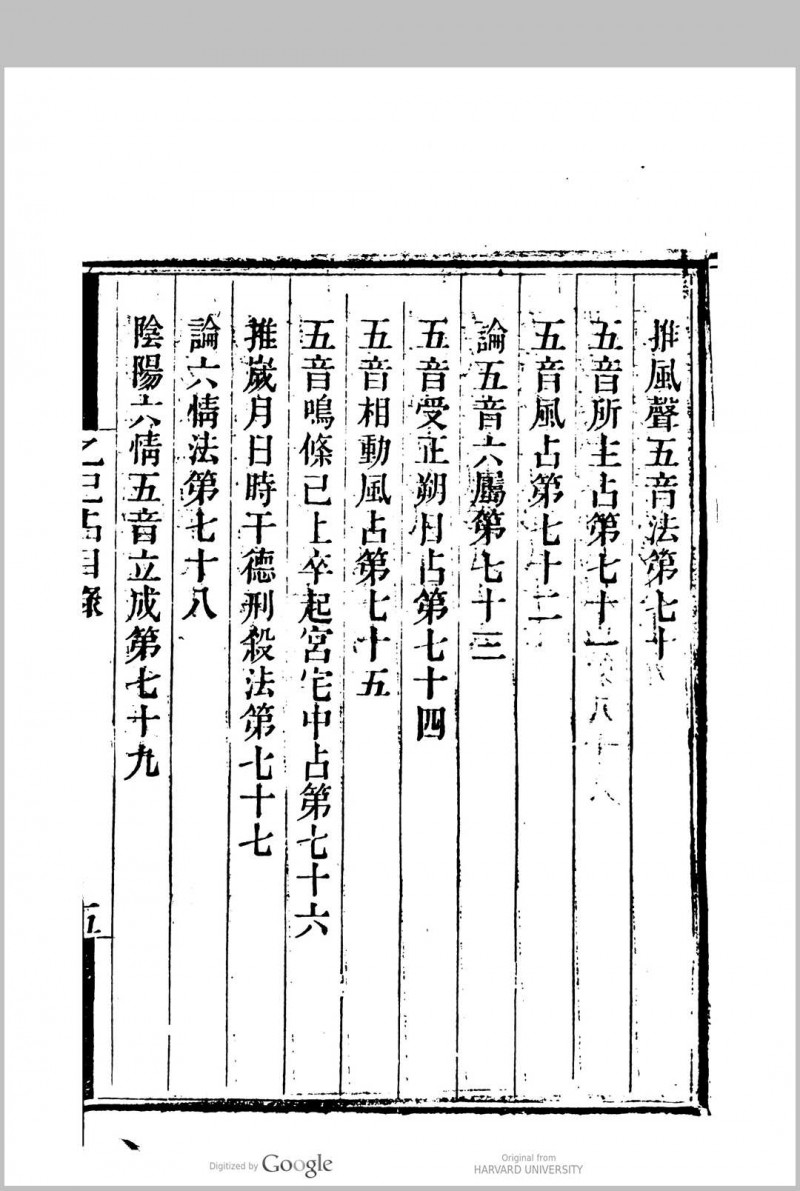 推風聲五音法第七十
五音所主占第七十一
五音風占第七十二
論五音六屬第七十三
五音受正朔日占第七十四
五音相動風占第七十五
五音鳴條已上卒起宮宅中占第七十六
推歲月日時干德刑殺法第七十七
論六情法第七十八
陰陽六情五音立成第七十九
乙巳占目錄
五
Digitized by Google
Original from
HARVARD UNIVERSITY